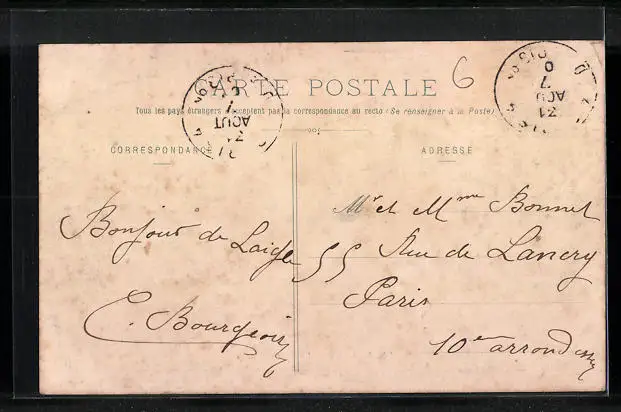 CARTE POSTALE
6
Tous les pays étrangers n'acceptent pas la correspondance au recto (Se renseigner à la Poste)
CORRESPONDANCE
ADRESSE
Bonjour de Laigle
E. Bourgeois
Mr et Mme Bonnet
55 Rue de Lancry
Paris
10e arrondt
31
AOUT
07
31
AOU
07